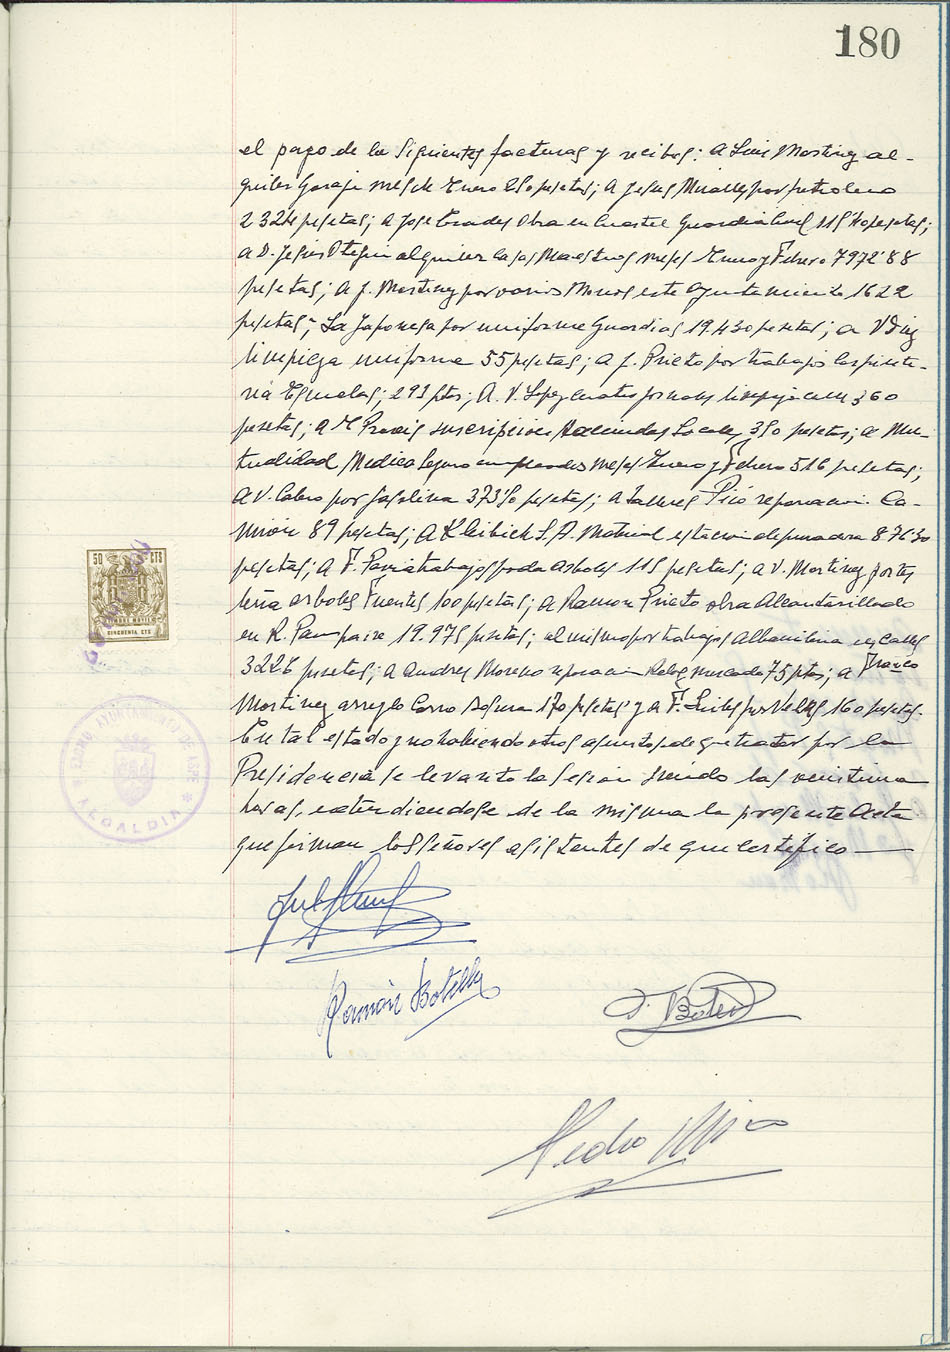 180
el pago de la siguientes facturas y recibos: a Luis Martinez al-
quiler Garaje mes de Enero 250 pesetas; a Jesus Miralles por petroleo
2324 pesetas; a Jose obra en Cuartel Guardia Civil pesetas;
a D. Jesus alquiler Casas Maestros meses Enero y Febrero 7972'88
pesetas; a J. Martinez por varios este Ayuntamiento 1622
pesetas; La Japonesa por uniforme Guardias 19.430 pesetas; a V Diez
limpieza uniforme 55 pesetas; a J. Prieto por trabajos Carpinte-
ria Escuelas; 293 ptas; A. V. Lopez cuatro jornales limpieza 360
pesetas; a suscripcion Haciendas Locales 350 pesetas; a Mu-
tualidad Medica Seguro empleados meses Enero y Febrero 516 pesetas;
a V. Calero por gasolina pesetas; a Talleres Picó reparacion Ca-
mión 89 pesetas; a Kleibich S.A. Material estacion depuradora 87630
pesetas; a F. trabajos poda arboles 115 pesetas; a V. Martinez portes
arboles Fuentes 100 pesetas; a Ramon Prieto obra Alcantarillado
en R. 19.975 pesetas; al mismo por trabajos Albañileria en Calles
3226 pesetas; a Andres Moreno reparacion Reloj mercado 75 ptas; a
Martinez arreglo Carro Basura 170 pesetas y a F. por 160 pesetas.
En tal estado y no habiendo otros asuntos de que tratar por la
Presidencia se levanto la sesion siendo las veintiuna
horas, extendiendose de la misma la presente Acta
que firman los señores asistentes de que certifico
50 CTS
TIMBRE MOVIL
CINCUENTA CTS
EXCMO AYUNTAMIENTO DE ASPE
ALCALDIA
Ramón Botella
Pedro